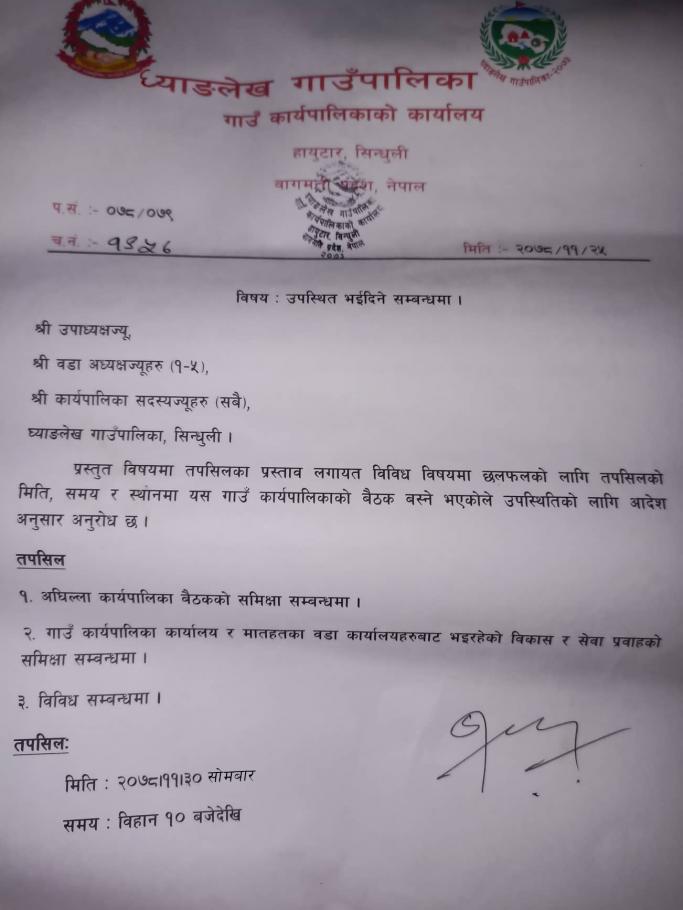 घ्याङलेख गाउँपालिका
गाउँ कार्यपालिकाको कार्यालय
हायुटार, सिन्धुली
बागमती प्रदेश, नेपाल
घ्याङलेख गाउँपालिका
गाउँ कार्यपालिकाको कार्यालय
हायुटार, सिन्धुली
बागमती प्रदेश, नेपाल
२०७३
घ्याङलेख गाउँपालिका-२०७३
प.सं. :- ०७८/०७९
च.नं. :- १३५६
मिति :- २०७८/११/२५
विषय : उपस्थित भईदिने सम्बन्धमा ।
श्री उपाध्यक्षज्यू,
श्री वडा अध्यक्षज्यूहरु (१-५),
श्री कार्यपालिका सदस्यज्यूहरु (सबै),
घ्याङलेख गाउँपालिका, सिन्धुली ।
प्रस्तुत विषयमा तपसिलका प्रस्ताव लगायत विविध विषयमा छलफलको लागि तपसिलको
मिति, समय र स्थानमा यस गाउँ कार्यपालिकाको बैठक बस्ने भएकोले उपस्थितिको लागि आदेश
अनुसार अनुरोध छ ।
तपसिल
१. अघिल्ला कार्यपालिका बैठकको समिक्षा सम्बन्धमा ।
२. गाउँ कार्यपालिका कार्यालय र मातहतका वडा कार्यालयहरुबाट भइरहेको विकास र सेवा प्रवाहको
समिक्षा सम्बन्धमा ।
३. विविध सम्बन्धमा ।
तपसिल:
मिति : २०७८।११।३० सोमबार
समय : विहान १० बजेदेखि